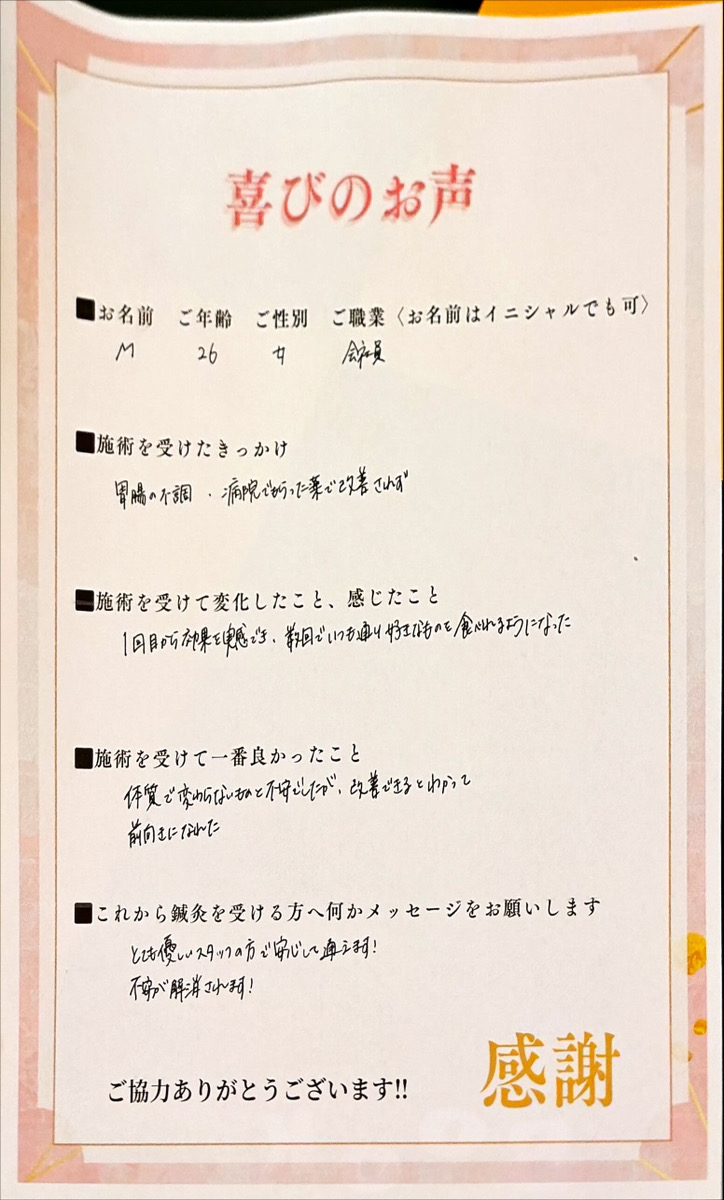 喜びのお声
■お名前 ご年齢 ご性別 ご職業〈お名前はイニシャルでも可〉
M 26 女 会社員
■施術を受けたきっかけ
胃腸の不調・病院でもらった薬で改善されず
■施術を受けて変化したこと、感じたこと
1回目から効果を実感でき、数回でいつも通り好きなものを食べれるようになった
■施術を受けて一番良かったこと
体質で変わらないものと不安でしたが、改善できるとわかって
前向きになれた
■これから鍼灸を受ける方へ何かメッセージをお願いします
とても優しいスタッフの方で安心して通えます!
不安が解消されます!
ご協力ありがとうございます!!
感謝